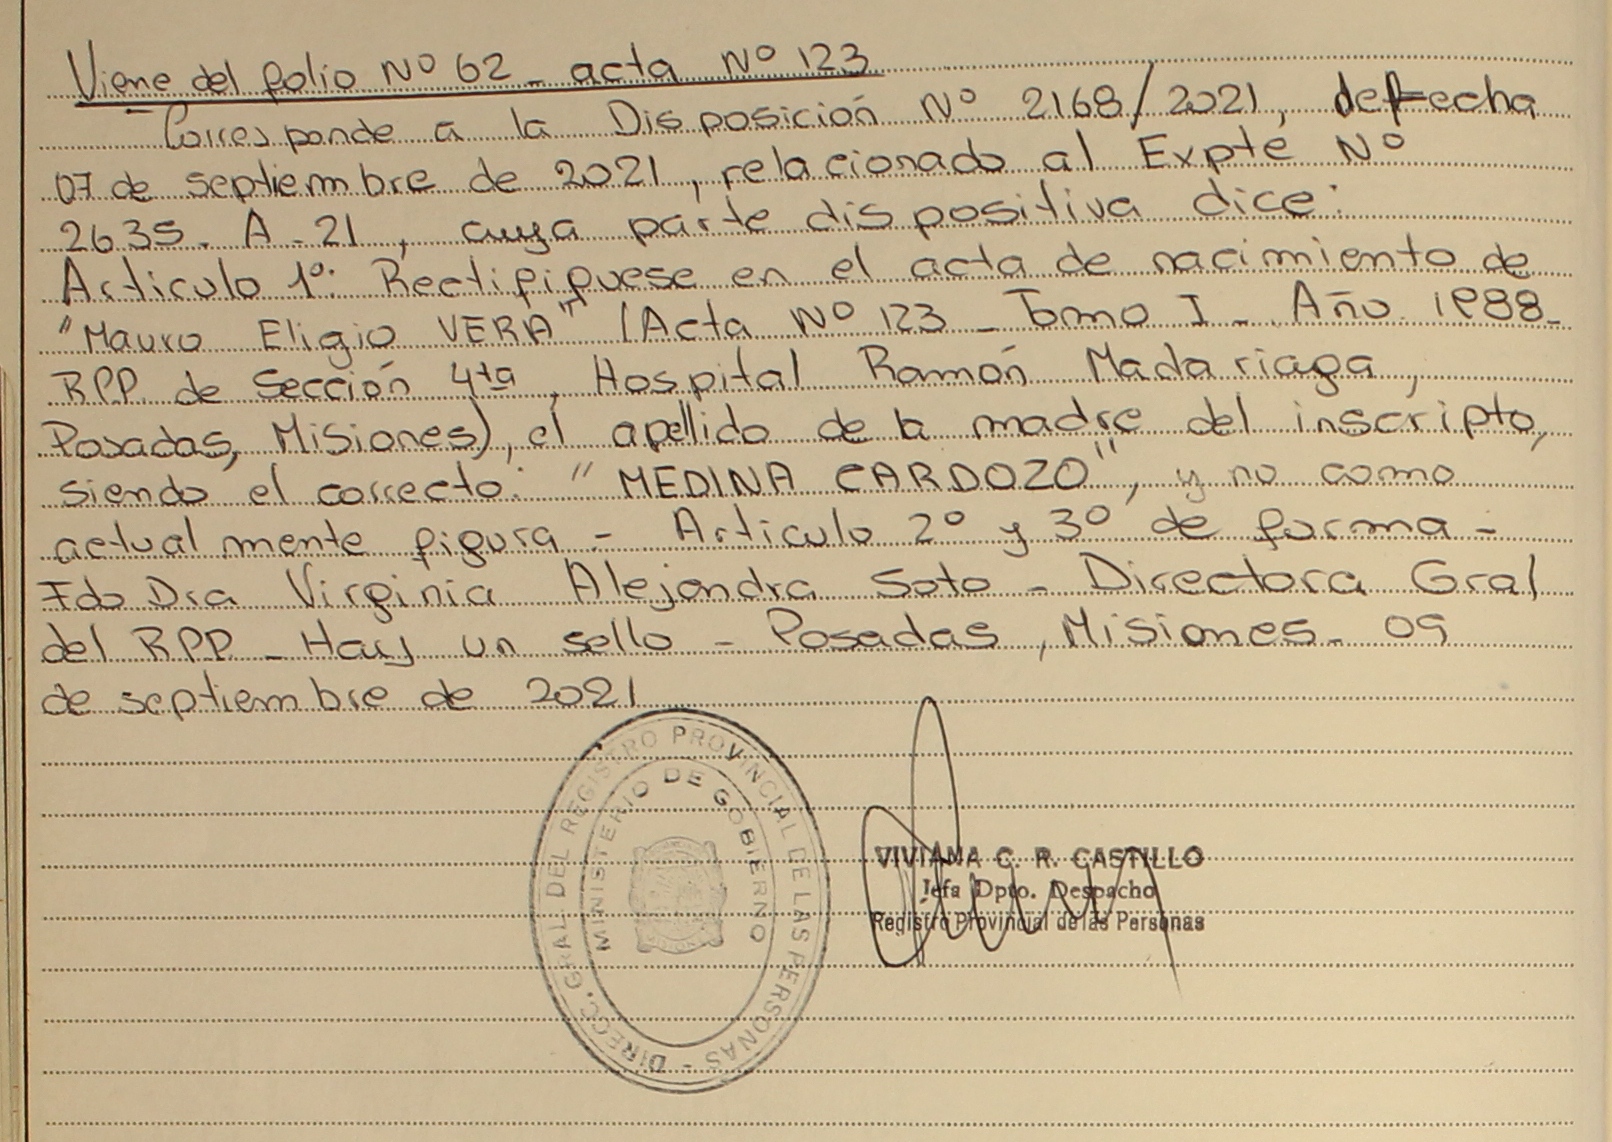 Viene del folio Nº 62 - acta Nº 123
- Corresponde a la Disposición Nº 2168/2021, de fecha
07 de septiembre de 2021, relacionado al Expte Nº
2635. A - 21, cuya parte dispositiva dice:
Articulo 1º: Rectifiquese en el acta de nacimiento de
"Mauro Eligio VERA" (Acta Nº 123 - Tomo I - Año 1988 -
RPP. de Sección 4ta, Hospital Ramón Madariaga,
Posadas, Misiones), el apellido de la madre del inscripto,
siendo el correcto: "MEDINA CARDOZO", y no como
actualmente figura - Articulo 2º y 3º de forma -
Fdo Dra Virginia Alejandra Soto - Directora Gral
del RPP - Hay un sello - Posadas, Misiones - 09
de septiembre de 2021
DIRECC. GRAL. DEL REGISTRO PROVINCIAL DE LAS PERSONAS -
MINISTERIO DE GOBIERNO
VIVIANA C. R. CASTILLO
Jefa Dpto. Despacho
Registro Provincial de las Personas